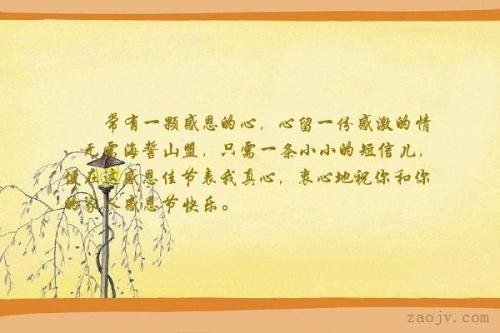 常有一颗感恩的心，心留一份感激的情
无需海誓山盟，只需一条小小的短信儿，
在这感恩佳节表我真心，衷心地祝你和你
的家人感恩节快乐。
zaojv.com